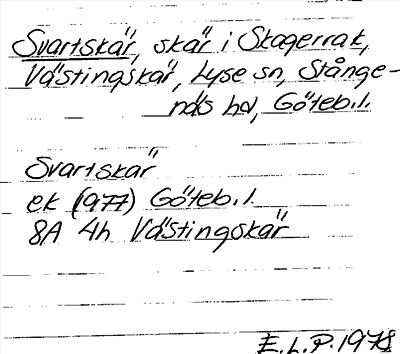 Svartskär, skär i Skagerrak,
Västingskär, Lyse sn, Stånge-
näs hd, Göteb.l.
Svartskär
ek (977) Göteb.l.
8A 4h Västingskär
E.L.P. 1978